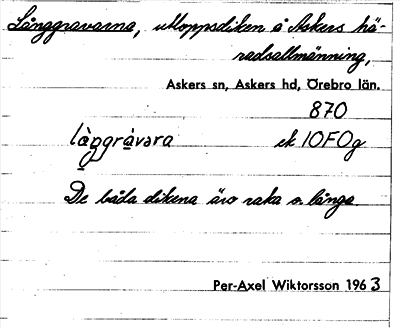 Långgravarna, utloppsdiken å Askers hä-
radsallmänning,
Askers sn, Askers hd, Örebro län.
870
làŋgràvara ek 10F0g
De båda dikena äro raka o. långa.
Per-Axel Wiktorsson 1963